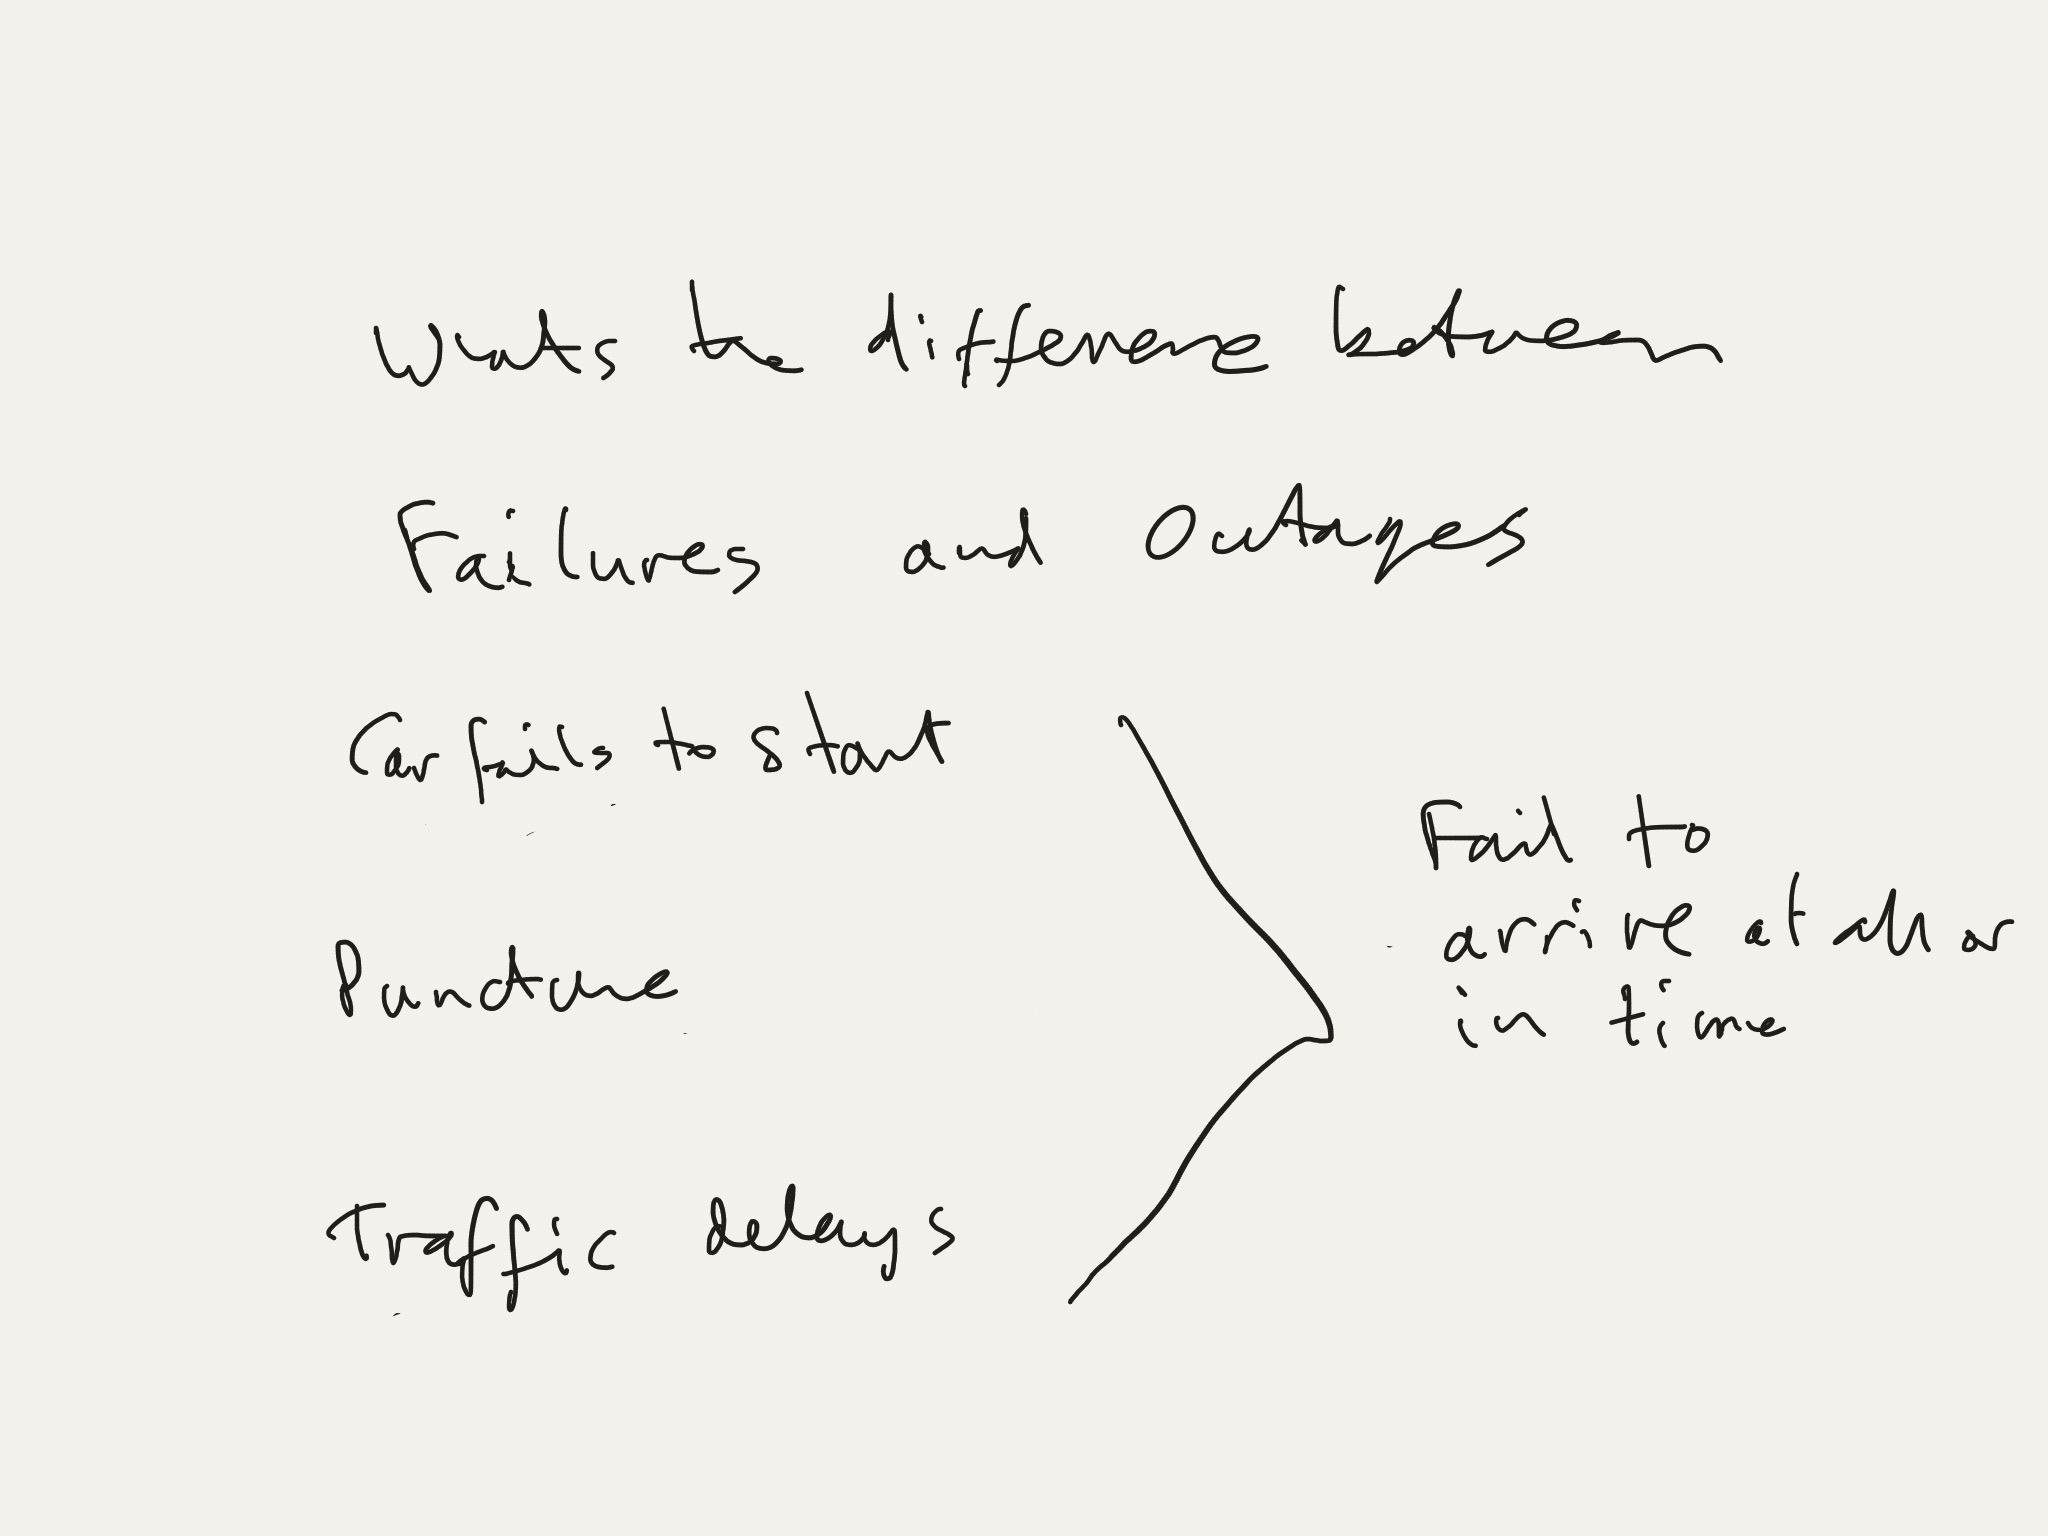 Whats the difference between
Failures and Outages
Car fails to start
Puncture
Traffic delays
Fail to
arrive at all or
in time